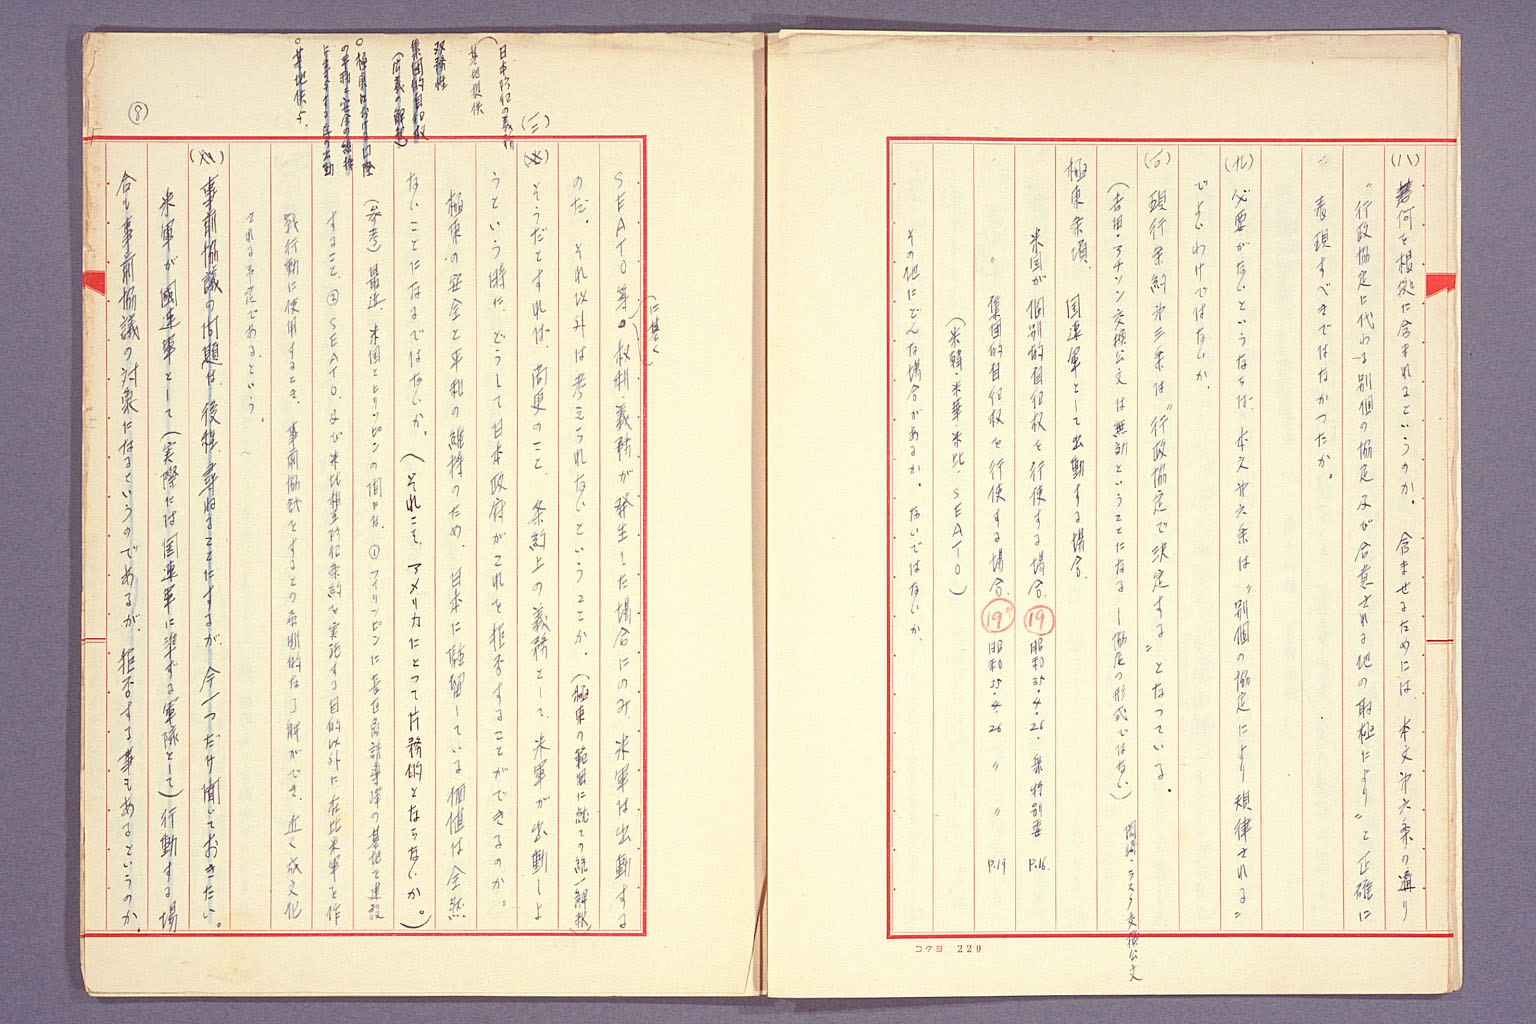 (八) 若何を根拠に含まれるというのか。 含ませるためには、本文第六条の通り
“行政協定に代わる別個の協定及び合意される他の取極により”と正確に
表現すべきではなかつたか。
(九) 必要がないというならば、本文第六条は“別個の協定により規律される”
でよいわけではないか。
(一〇) 現行条約第三条は“行政協定で決定する”となつている。
(吉田・アチソン交換公文は無効ということになる ー 協定の形式ではない)
岡崎・ラスク交換公文
極東条項、 国連軍として出動する場合、
米国が個別的自衛権を行使する場合、 19 昭和35.4.26. 衆特別委 P.16.
〃 集団的自衛権を行使する場合、 19 昭和35.4.26 〃 〃 P.19
(米韓・米華・米比、SEATO)
その他にどんな場合があるか。 ないではないか。
コクヨ 220
SEATO等の権利・義務が発生した場合にのみ、米軍は出動する
(に基く)
のだ。それ以外は考えられないということか。(極東の範囲に就ての統一解釈)
(三) そうだとすれば、尚更のこと、条約上の義務として、米軍が出動しよ
うという時に、どうして日本政府がこれを拒否することができるのか。
極東の安全と平和の維持のため、日本に駐留している価値は全然
ないことになるではないか。(それこそ、アメリカにとつて片務的とならないか。)
(参考) 最近、米国とヒリッピンの間では、①フィリッピンに長距離誘導弾の基地を建設
すること、②SEATO、及び米比相互防衛条約を実施する目的以外に在比米軍を作
戦行動に使用するとき、事前協議をするとの原則的な了解ができ、近く成文化
される予定である、という。
事前協議の問題は、後程尋ねることにするが、今一つだけ聞いておきたい。
米軍が國連軍として(実際には国連軍に準ずる軍隊として)行動する場
合も事前協議の対象になるというのであるが、拒否する事もあるというのか。
日本防衛の義務
基地提供
双務性
集団的自衛権
(広義の解釈)
○極東における国際
の平和と安全の維持
○基地供与、
⑧